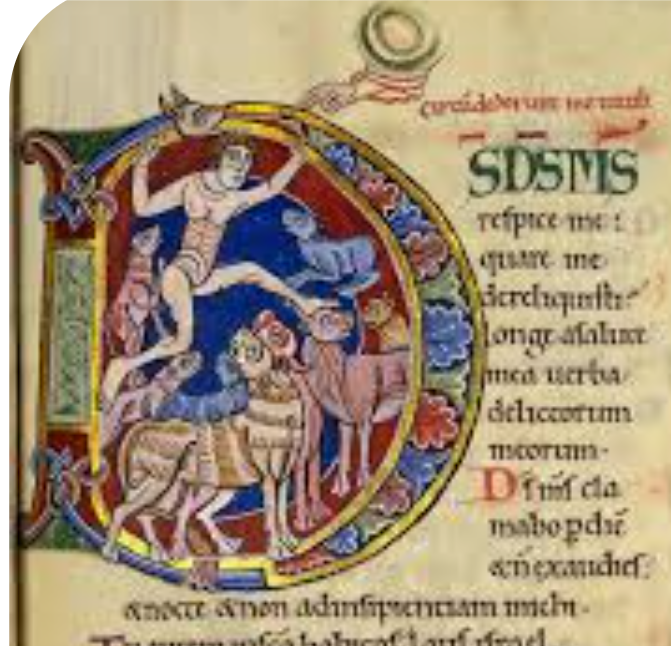 DS DS MS
respice me :
quare me
dereliquisti?
longe asalute
mea uerba
delictorum
meorum.
Ds ms cla
mabo p die
& n exaudies:
& nocte & non ad insipientiam michi.